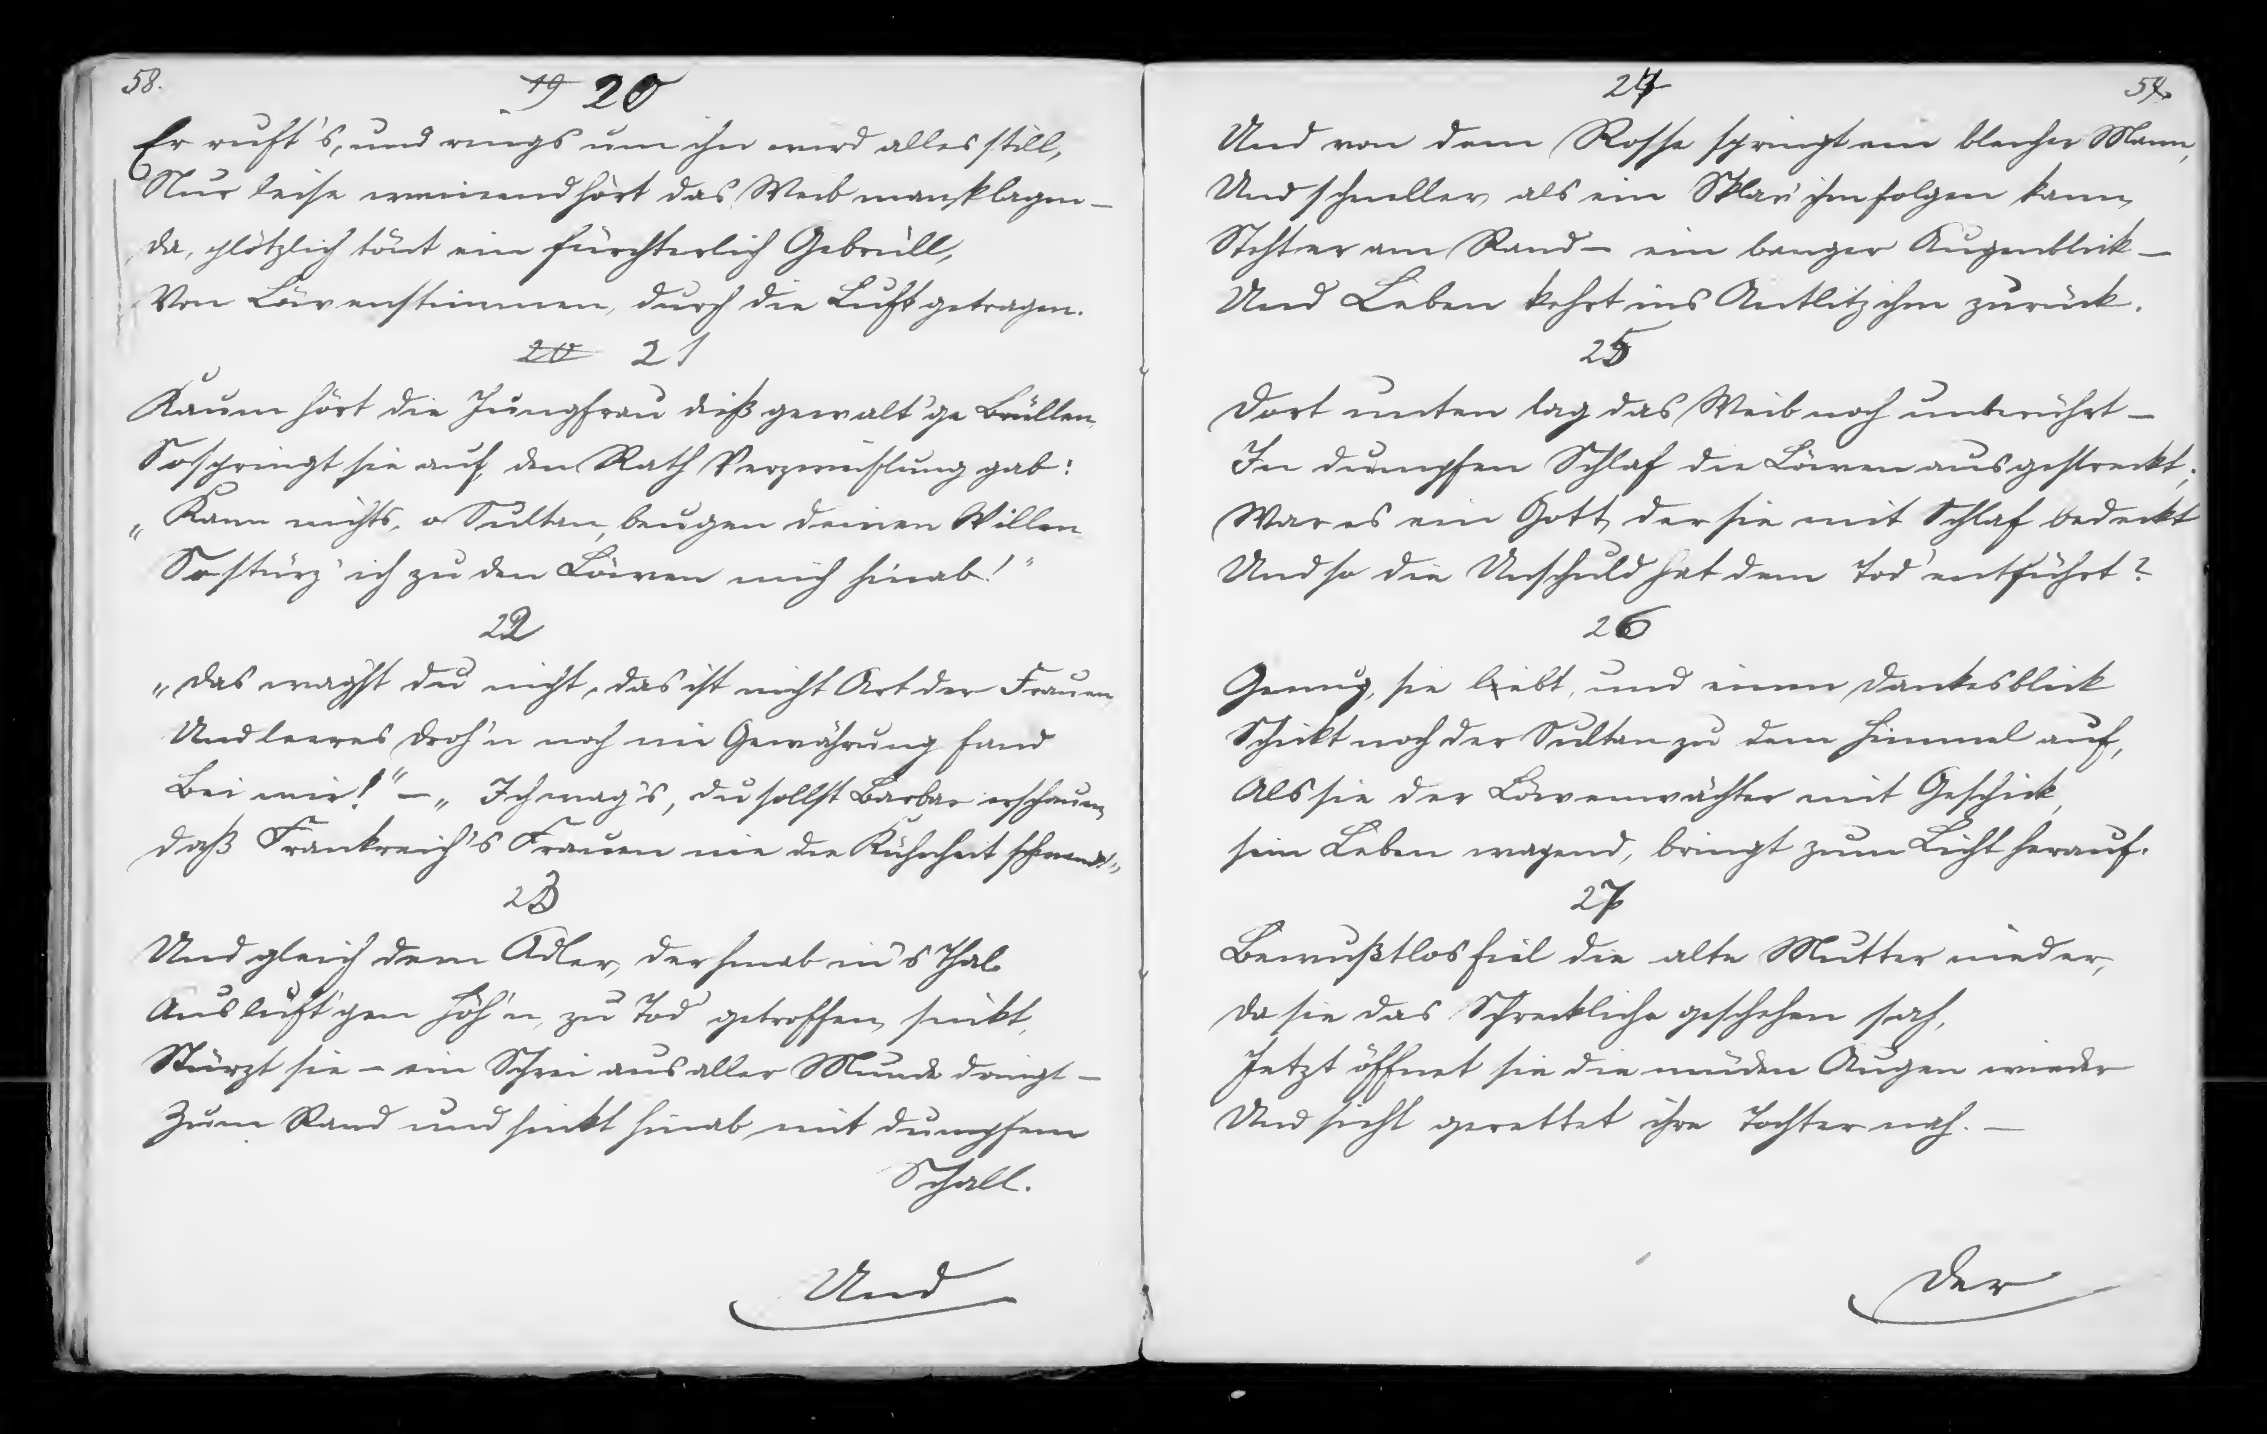 58.
19 20
Er ruft's, und rings um ihn wird alles still,
Nur leise weinend hört das Weib man klagen —
Da, plötzlich tönt ein fürchterlich Gebrüll,
Von Löwenstimmen, durch die Luft getragen.
20 21
Kaum hört die Jungfrau dieß gewalt'ge Brüllen,
So springt sie auf, den Rath Verzweiflung gab:
„Kann nichts, o Sultan, beugen deinen Willen
So stürz' ich zu den Löwen mich hinab!"
22
„Das wagst du nicht, das ist nicht Art der Frauen,
Und leeres Droh'n noch nie Gewährung fand
Bei mir!" — „Ich wag's, du sollst Barbar erschauen,
Daß Frankreich's Frauen nie die Kühnheit schwand"
23
Und gleich dem Adler, der hinab in's Thal
Aus luft'gen Höh'n, zu Tod' getroffen, sinkt,
Stürzt sie – ein Schrei aus aller Munde dringt –
Zum Rand und sinkt hinab mit dumpfem
Schall.
Und
24
59.
Und von dem Rosse springt ein bleicher Mann,
Und schneller als ein Sklav' ihm folgen kann,
Steht er am Rand – ein banger Augenblick –
Und Leben kehrt ins Antlitz ihm zurück.
25
Dort unten lag das Weib noch unberührt –
In dumpfen Schlaf die Löwen ausgestreckt;
War es ein Gott, der sie mit Schlaf bedeckt
Und so die Unschuld hat dem Tod' entführt?
26
Genug, sie lebt, und einen Dankesblick
Schickt noch der Sultan zu dem Himmel auf,
Als sie der Löwenwächter mit Geschick,
sein Leben wagend, bringt zum Licht herauf.
27
Bewußtlos fiel die alte Mutter nieder,
Da sie das Schreckliche geschehen sah,
Jetzt öffnet sie die müden Augen wieder
Und sieht gerettet ihre Tochter nah. —
Der